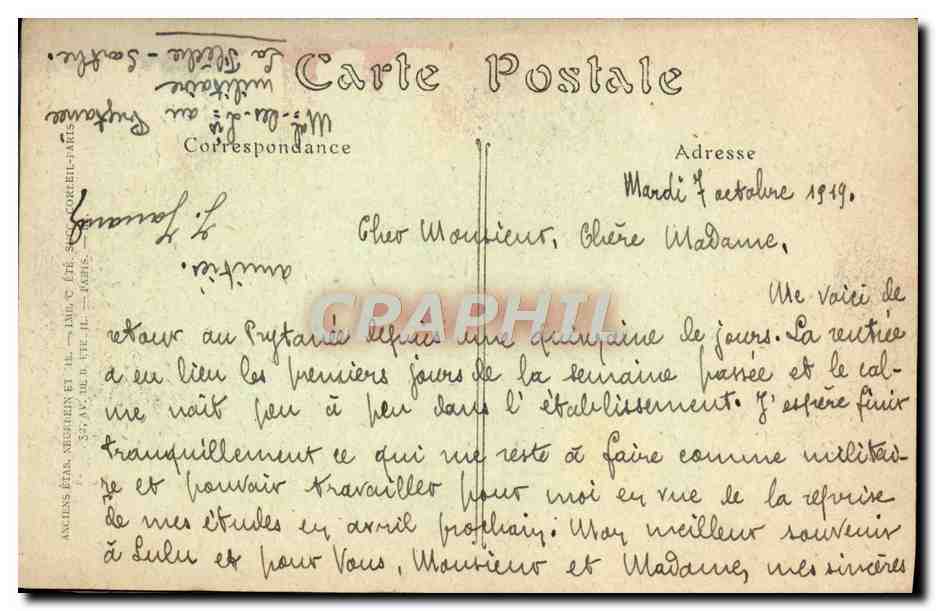 Carte Postale
Correspondance
Adresse
Mardi 7 octobre 1919.
Cher Monsieur, Chère Madame,
Me voici de
retour au Prytanée depuis une quinzaine de jours. La rentrée
a eu lieu les premiers jours de la semaine passée et le cal-
me naît peu à peu dans l'établissement. J'espère finir
tranquillement ce qui me reste à faire comme militai-
re et pouvoir travailler pour moi en vue de la reprise
de mes études en avril prochain. Mon meilleur souvenir
à Lulu et pour Vous, Monsieur et Madame, mes sincères
amitiés.
au Prytanée
militaire
La Flèche - Sarthe.
ANCIENS ÉTAB. NEURDEIN ET CIE. — IMP. CRÉTÉ, SUCC. CORBEIL-PARIS
CRAPHIL